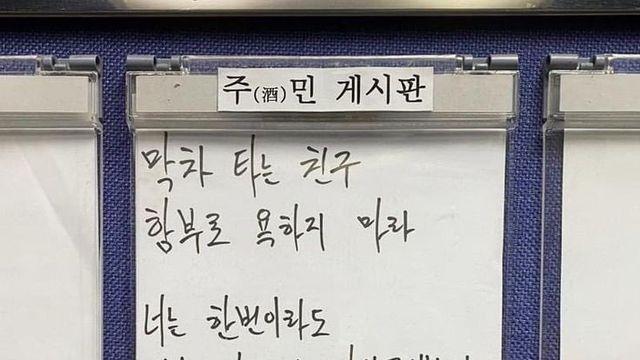 주(酒)민 게시판
막차 타는 친구
함부로 욕하지 마라
너는 한번이라도